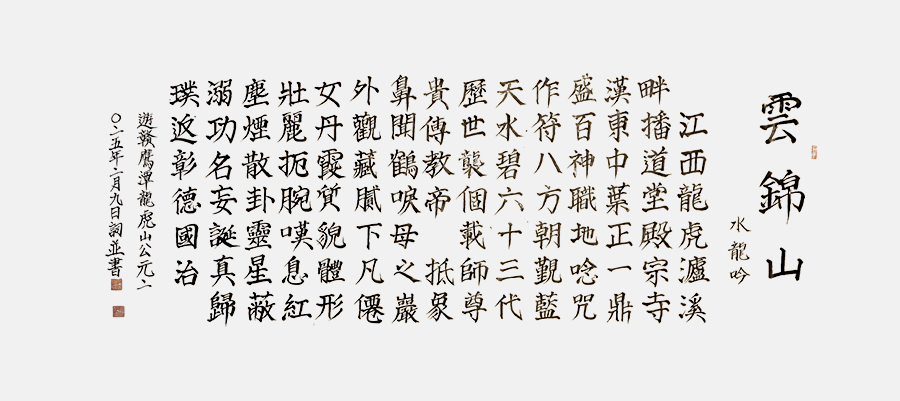 雲錦山
水龍吟
江西龍虎瀘溪
畔播道堂殿宗寺
漢東中葉正一鼎
盛百神職地唸咒
作符八方朝覲藍
天水碧六十三代
歷世襲個載師尊
貴傳教帝 抵象
鼻聞鶴唳母之巖
外觀藏膩下凡僊
女丹霞質貌體形
壯麗扼腕嘆息紅
塵煙散卦靈星蔽
溺功名妄誕真歸
璞返彰德國治
遊贛鷹潭龍虎山公元二
〇一五年二月九日詞並書